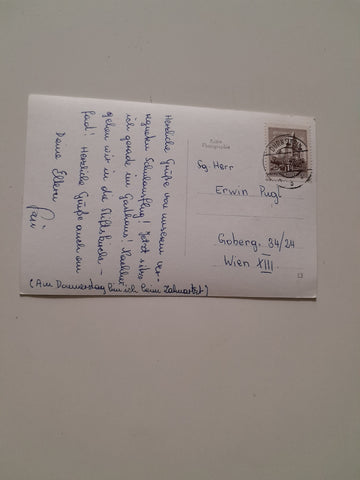 Herzliche Grüße von unserem ver-
regneten Schulausflug! Jetzt sitze
ich gerade im Gasthaus! Nachher
gehen wir in die Stiftskirche –
fad! Herzliche Grüße auch an
Deine Eltern
(Am Donnerstag bin ich beim Zahnarzt!)
Echte
Photographie
Sg Herr
Erwin Pugl
Goberg. 34/24
Wien XIII.